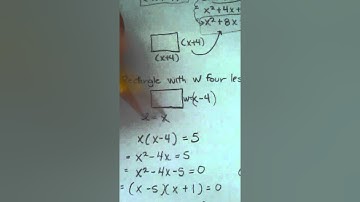 x²+4x+
x²+8x
(x+4)
(x+4)
Rectangle with w four les
w=(x-4)
x(x-4)=5
= x²-4x=5
= x²-4x-5=0
= (x-5)(x+1)=0